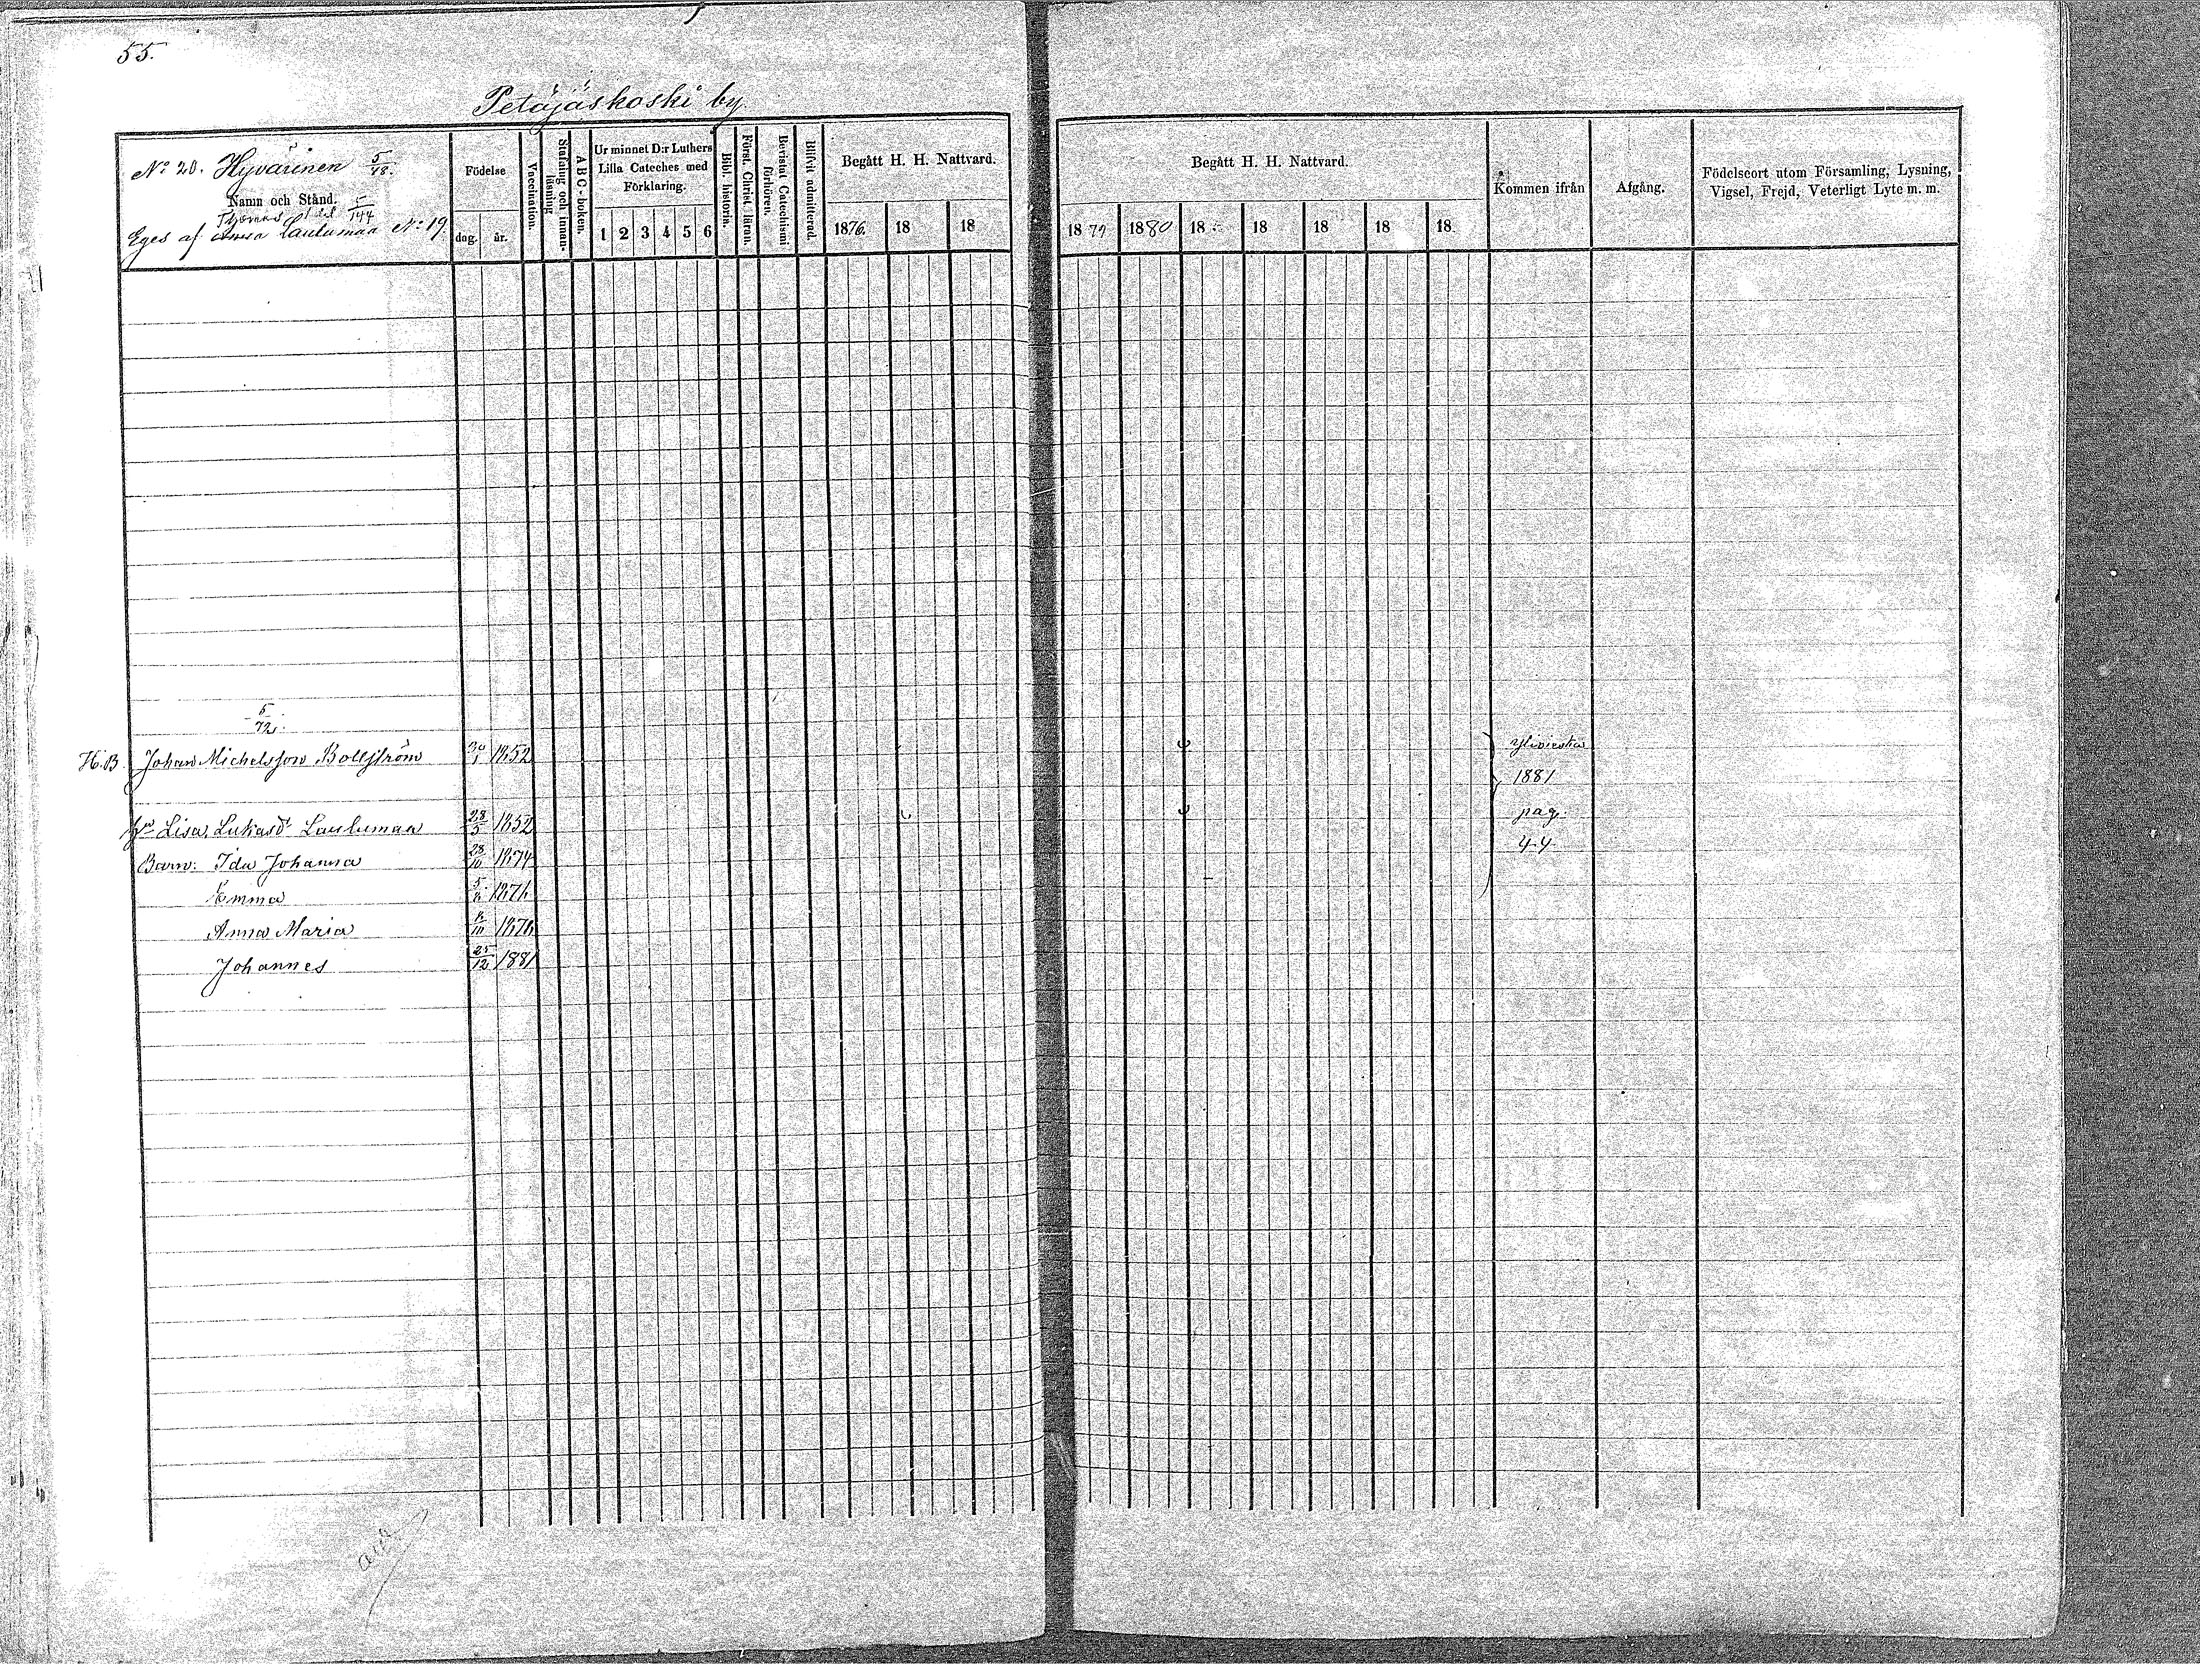 55.
Petäjäskoski by
No 20. Hyvärinen 5/48.
Namn och Stånd.
Thomas 5/144
Eges af Anna Laulumaa No 19.
Födelse
dag. år.
Vaccination.
Stafning och innanläsning
ABC-boken.
Ur minnet D:r Luthers Lilla Cateches med Förklaring.
1 2 3 4 5 6
Bibl. historia.
Först. Christ. läran.
Bevistat Catechismi förhören.
Blifvit admitterad.
Begått H. H. Nattvard.
1876. 18 18
Begått H. H. Nattvard.
1879 1880 18 18 18 18 18.
Kommen ifrån
Afgång.
Födelseort utom Församling, Lysning, Vigsel, Frejd, Veterligt Lyte m. m.
5/72.
H.B. Johan Michelsson Bollström 30/1 1852 Ylivieska
1881
hu Lisa Lukasdr Laulumaa 28/5 1852 pag.
Barn: Ida Johanna 28/10 1874 44
Emma 1876
Anna Maria 1878
Johannes 25/12 1881